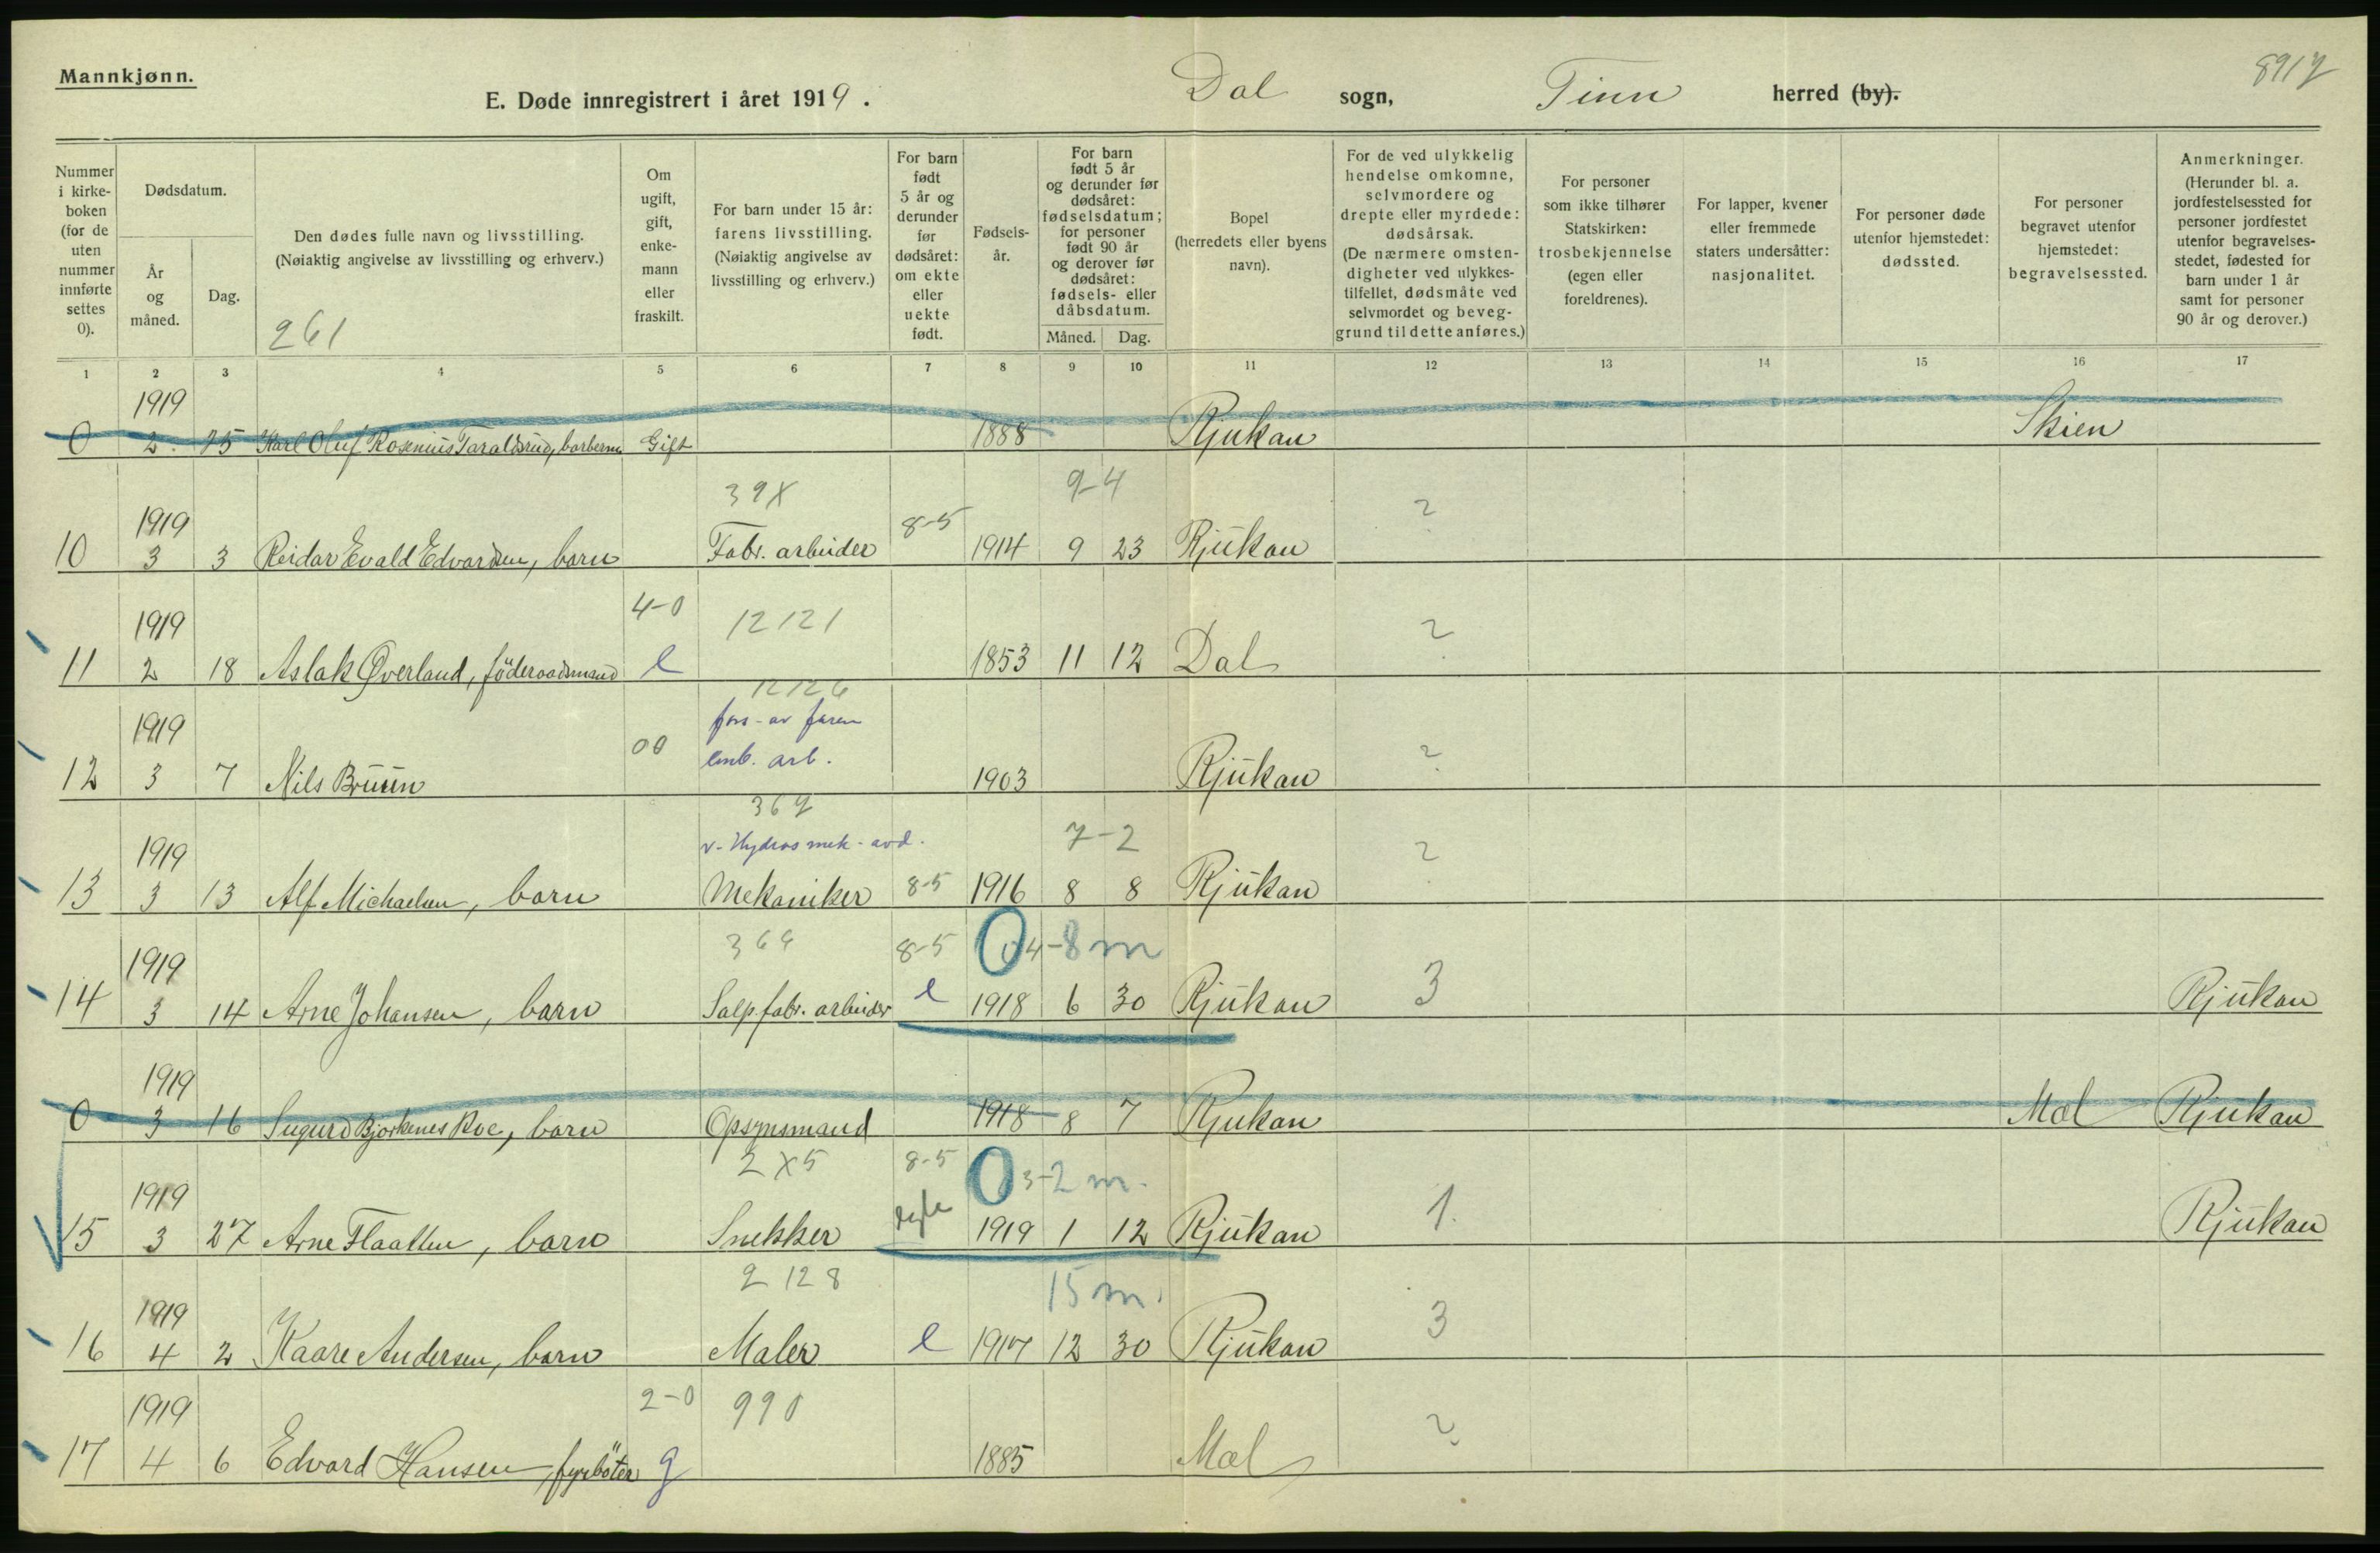 Mannkjønn.
E. Døde innregistrert i året 1919. Dal sogn, Tinn herred (by).
8917
Nummer i kirke-boken (for de uten nummer innførte settes 0).
Dødsdatum.
År og måned.
Dag.
Den dødes fulle navn og livsstilling.
(Nøiaktig angivelse av livsstilling og erhverv.)
261
Om ugift, gift, enke-mann eller fraskilt.
For barn under 15 år: farens livsstilling.
(Nøiaktig angivelse av livsstilling og erhverv.)
For barn født 5 år og derunder før dødsåret: om ekte eller uekte født.
Fødsels-år.
For barn født 5 år og derunder før dødsåret: fødselsdatum; for personer født 90 år og derover før dødsåret: fødsels- eller dåbsdatum.
Måned. Dag.
Bopel (herredets eller byens navn).
For de ved ulykkelig hendelse omkomne, selvmordere og drepte eller myrdede: dødsårsak.
(De nærmere omsten-digheter ved ulykkes-tilfellet, dødsmåte ved selvmordet og beveg-grund til dette anføres.)
For personer som ikke tilhører Statskirken: trosbekjennelse (egen eller foreldrenes).
For lapper, kvener eller fremmede staters undersåtter: nasjonalitet.
For personer døde utenfor hjemstedet: dødssted.
For personer begravet utenfor hjemstedet: begravelsessted.
Anmerkninger.
(Herunder bl. a. jordfestelsessted for personer jordfestet utenfor begravelses-stedet, fødested for barn under 1 år samt for personer 90 år og derover.)
1 2 3 4 5 6 7 8 9 10 11 12 13 14 15 16 17
1919
0 2 25 Karl Oluf Rosenius Taraldsrud, Gift 1888 Rjukan Skien
39X 9-4
1919 8-5 ?
10 3 3 Reidar Evald Edvardsen, barn Fabr. arbeider 1914 9 23 Rjukan
4-0 12121
1919 ?
11 2 18 Aslak Øverland, föderaadsmand e 1853 11 12 Dal
12126
1919 fors. av faren
00 emb. arb. ?
12 3 7 Nils Bruun 1903 Rjukan
367
1919 v. Hydros mek. avd. 7-2 ?
13 3 13 Alf Michaelsen, barn Mekaniker 8-5 1916 8 8 Rjukan
1919 8-5 0 4-8 m
14 3 14 Arne Johansen, barn Salp. fabr. arbeider e 1918 6 30 Rjukan 3 Rjukan
1919
0 3 16 Sigurd Bjørkenes Roe, barn Opsynsmand 1918 8 7 Rjukan Mæl Rjukan
2X5 8-5 0 3-2 m.
1919
15 3 27 Arne Flaatten, barn Snekker 1919 1 12 Rjukan 1. Rjukan
2128 15 m.
1919
16 4 2 Kaare Andersen, barn Maler e 1917 12 30 Rjukan 3
1919 2-0 990 ?
17 4 6 Edvard Hansen, fyrböter g 1885 Mæl